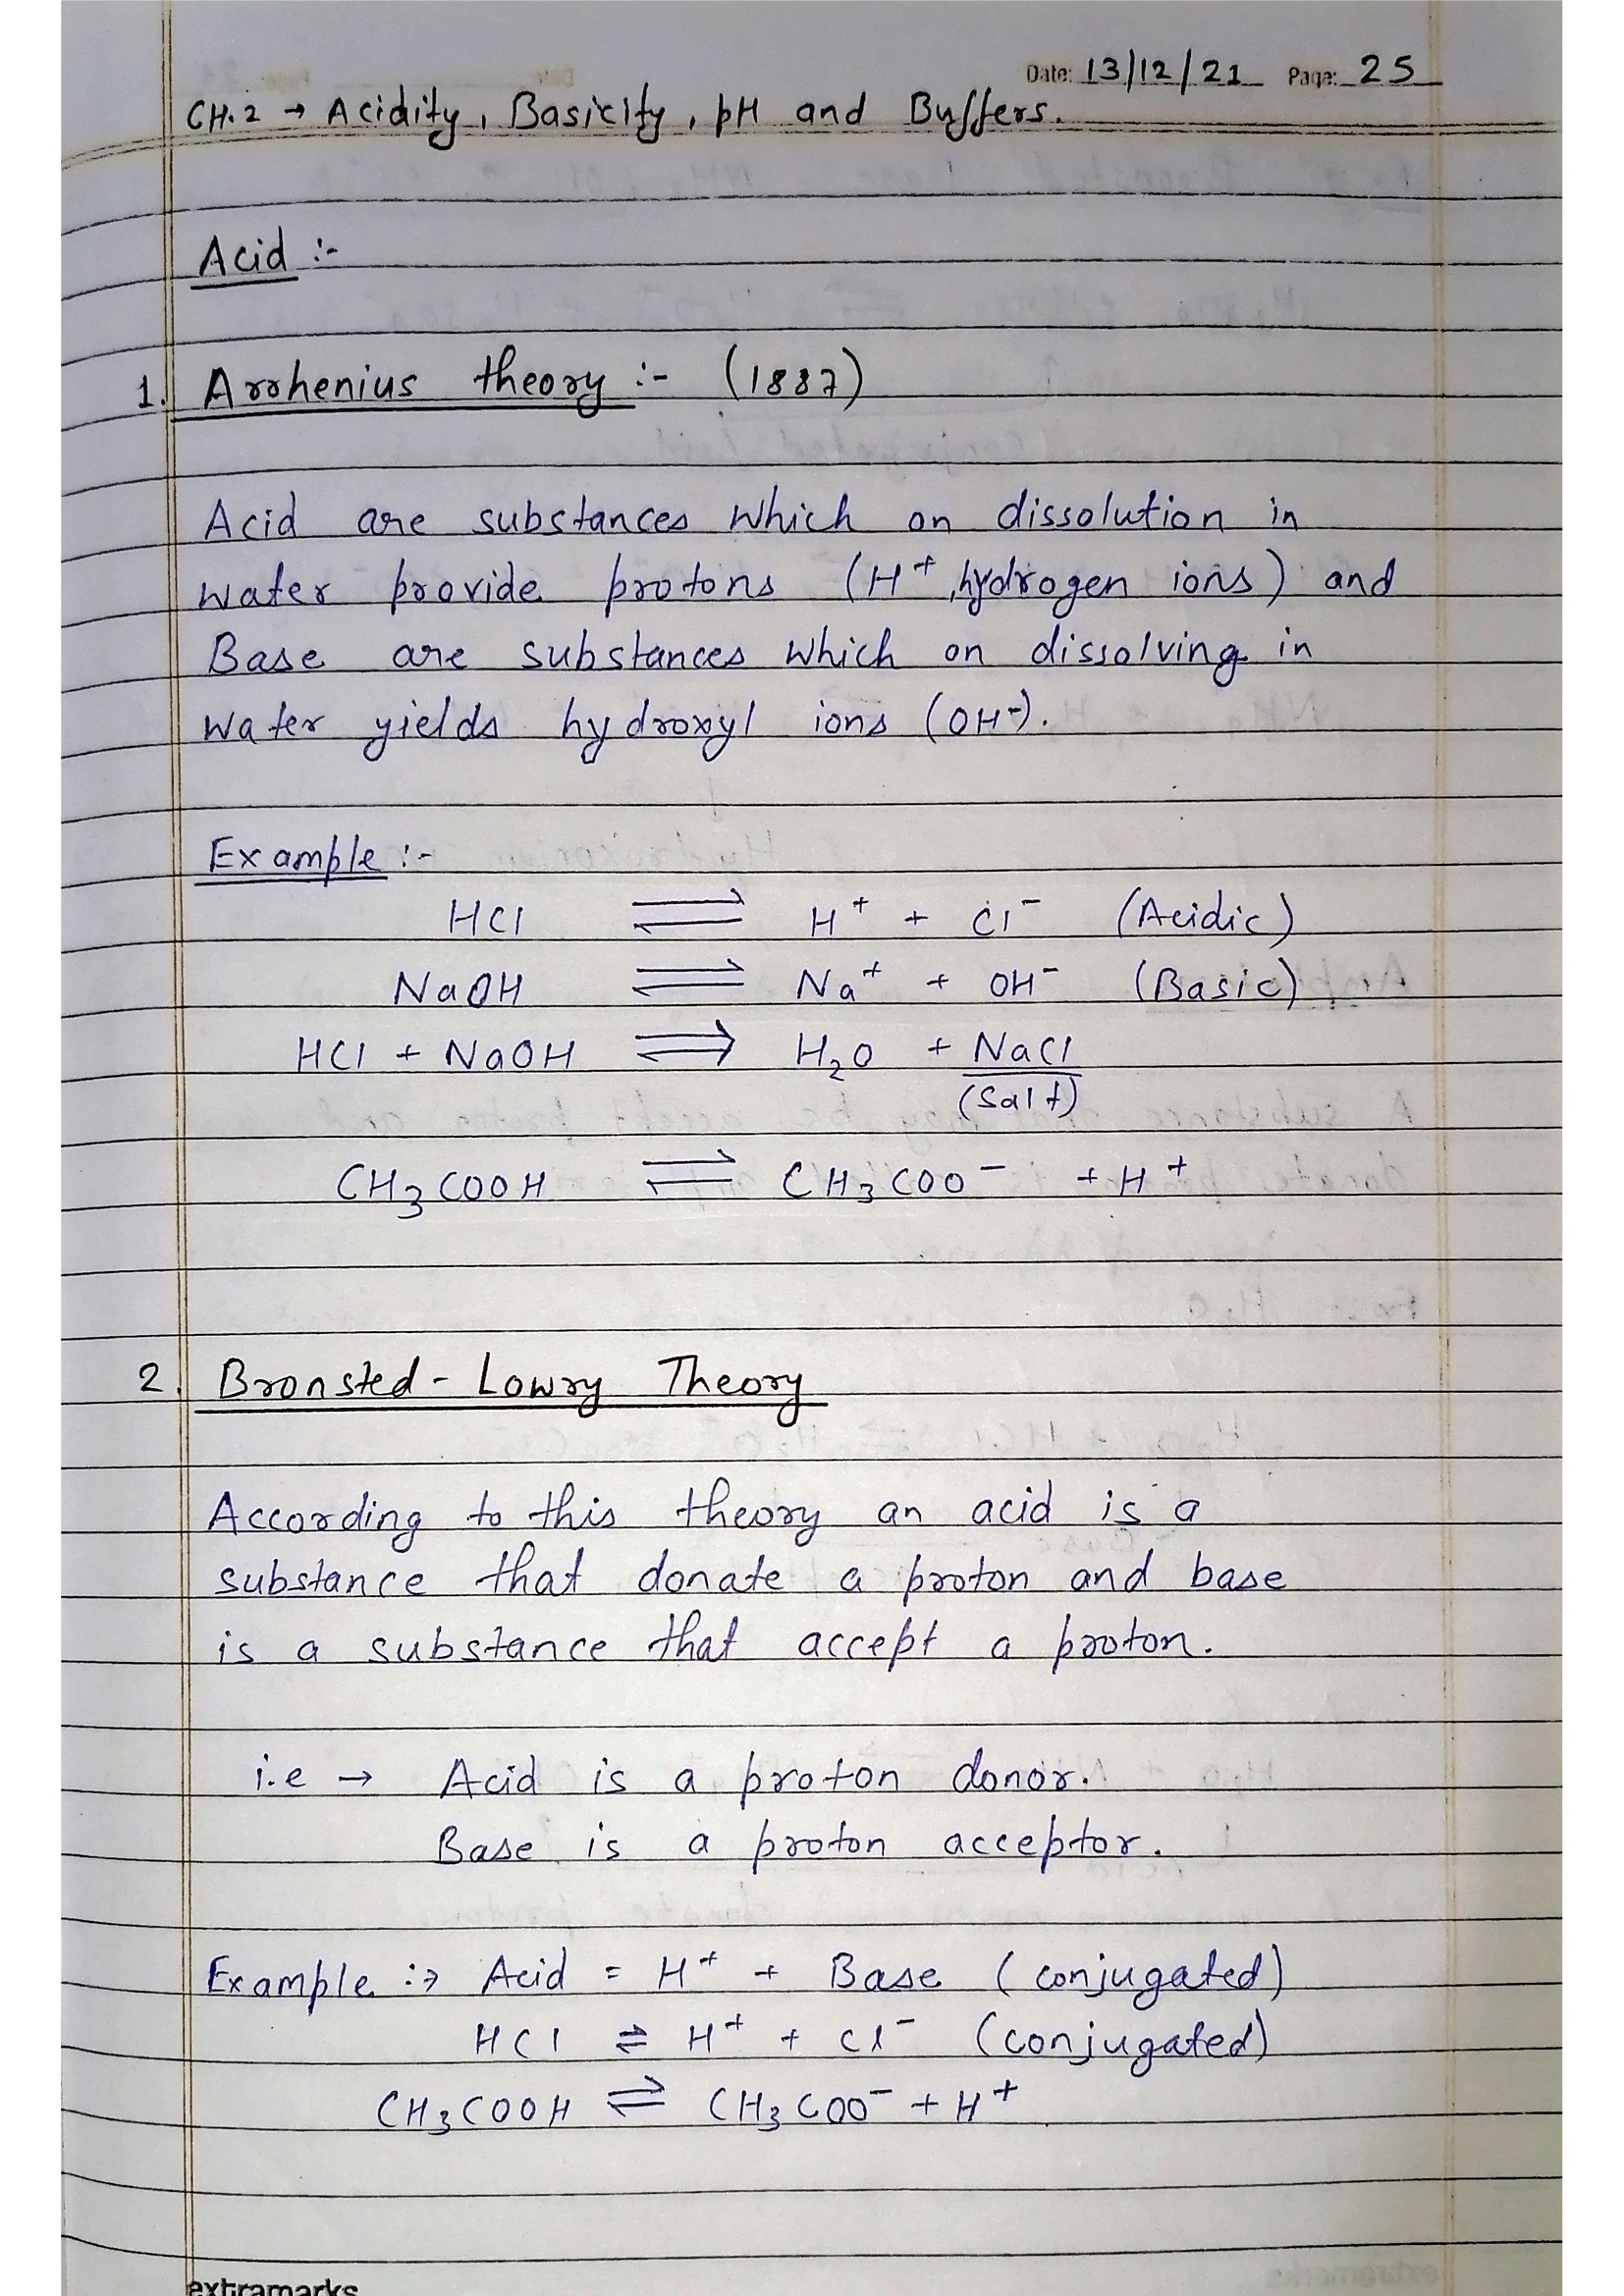 Date: 13/12/21 Page: 25
CH.2 → Acidity, Basicity, pH and Buffers.
Acid :-
1. Arrhenius theory :- (1887)
Acid are substances which on dissolution in
water provide protons (H⁺, hydrogen ions) and
Base are substances which on dissolving in
water yields hydroxyl ions (OH⁻).
Example :-
HCl ⇌ H⁺ + Cl⁻ (Acidic)
NaOH ⇌ Na⁺ + OH⁻ (Basic)
HCl + NaOH ⇌ H₂O + NaCl
(Salt)
CH₃COOH ⇌ CH₃COO⁻ + H⁺
2. Bronsted - Lowry Theory
According to this theory an acid is a
substance that donate a proton and base
is a substance that accept a proton.
i.e → Acid is a proton donor.
Base is a proton acceptor.
Example :→ Acid = H⁺ + Base (conjugated)
HCl ⇌ H⁺ + Cl⁻ (conjugated)
CH₃COOH ⇌ CH₃COO⁻ + H⁺
extramarks